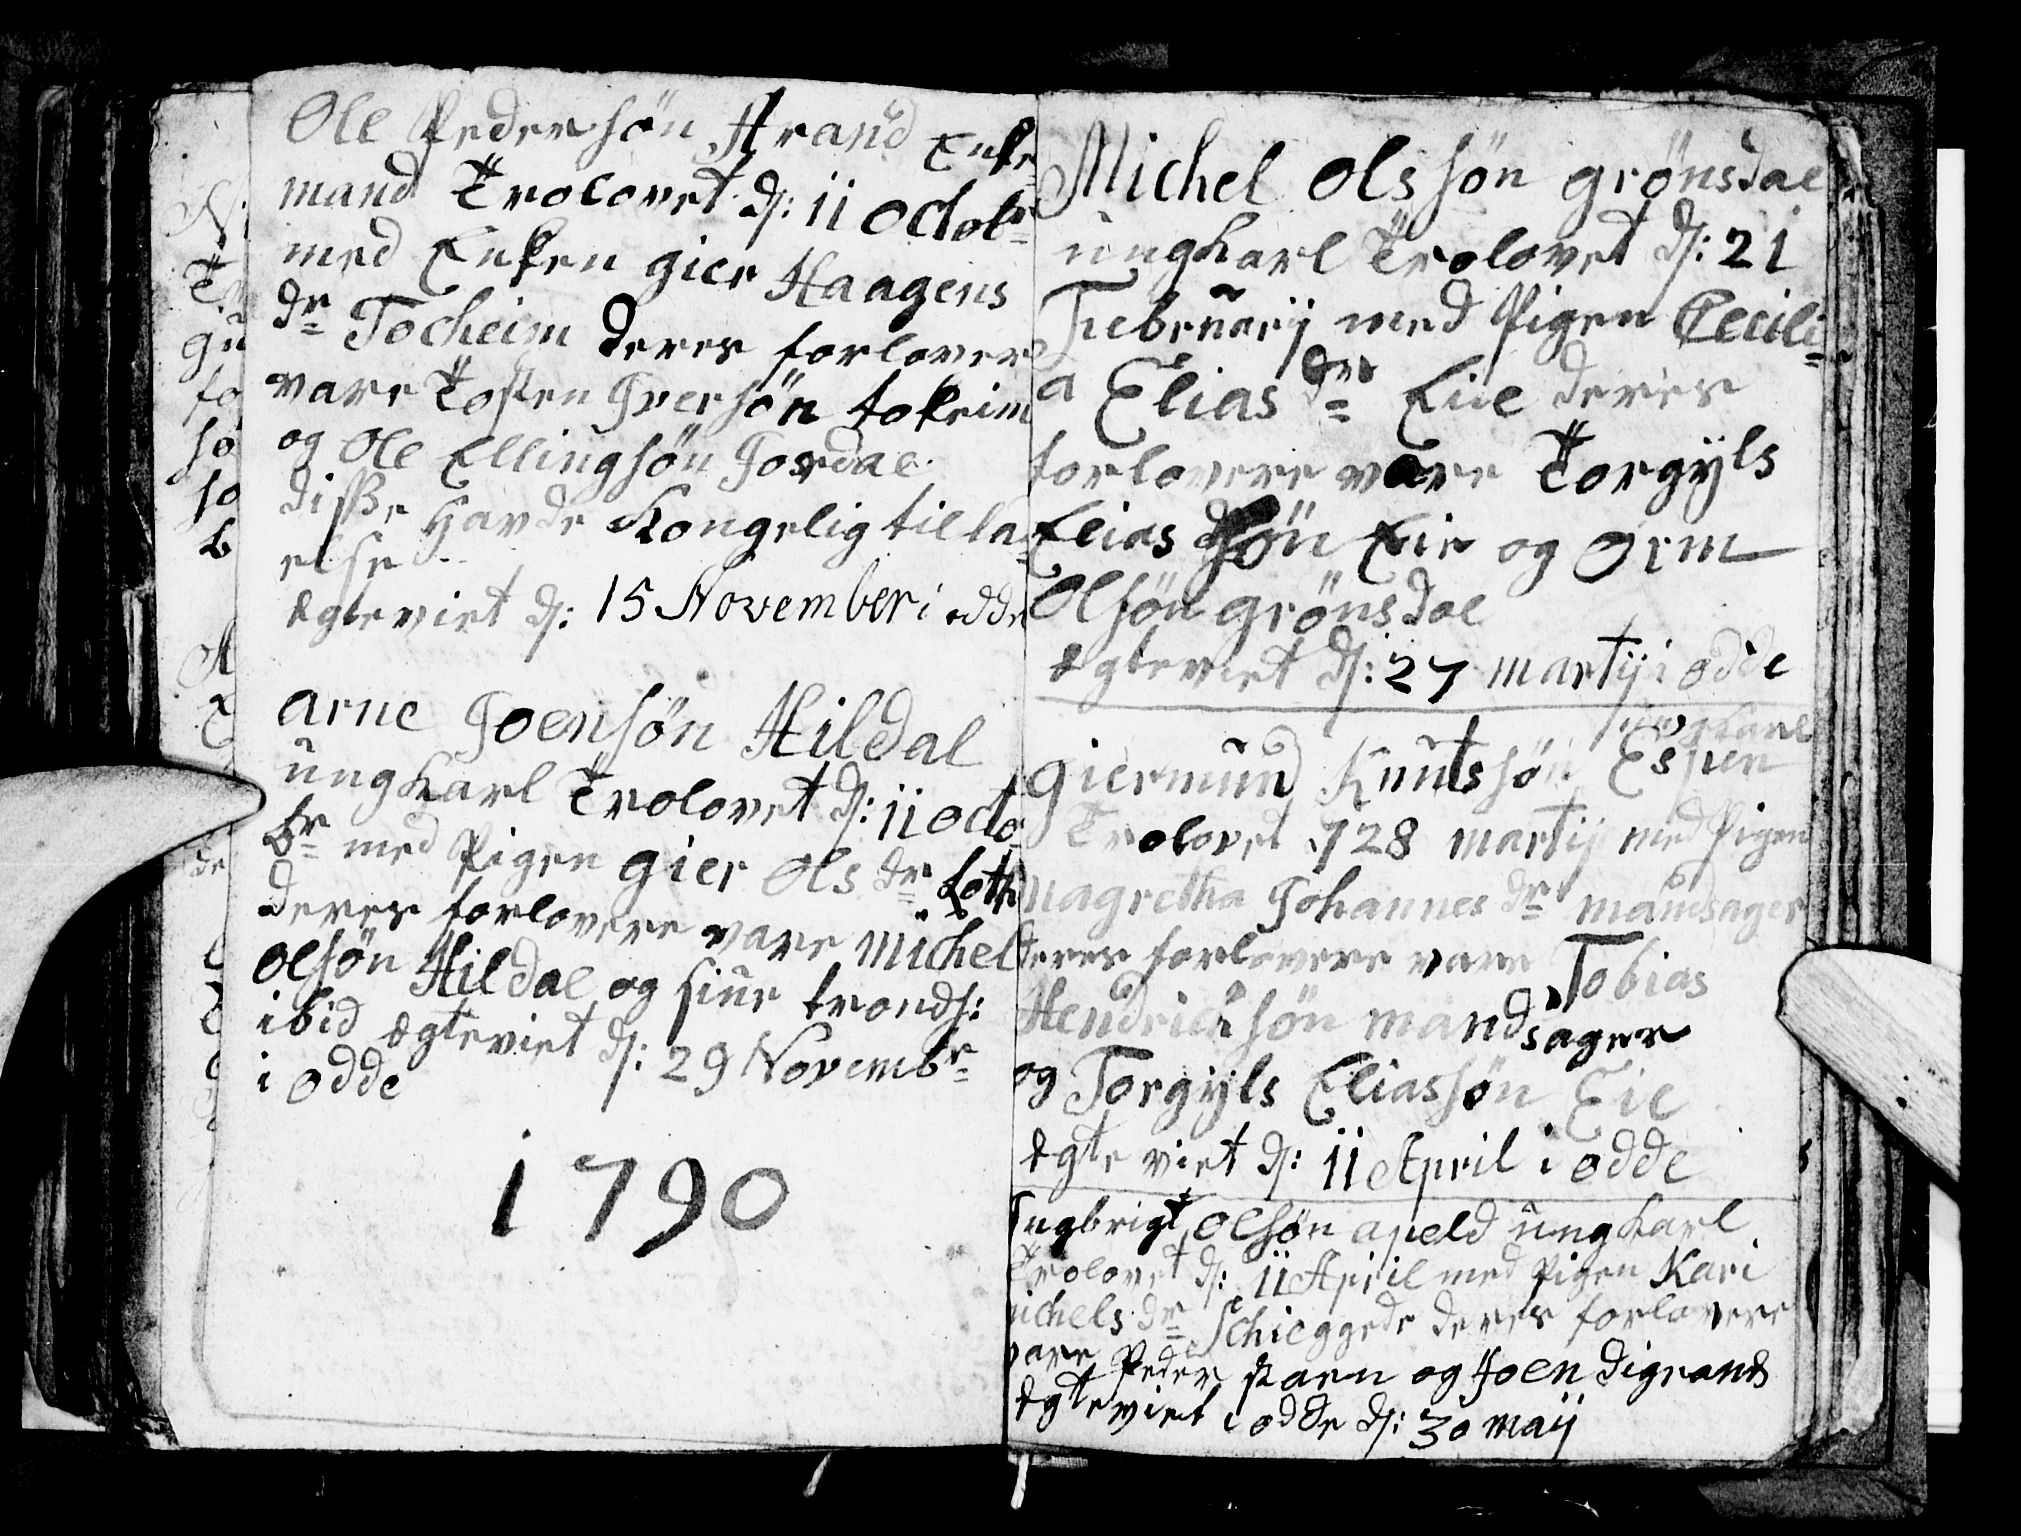 Ole Pedersøn Aranð Enke
mand Trolovet d: 11 octobr
med Enken gier Haagens
dr Tocheim deres forlover
vare Tosten Iversøn tokeim
og Ole Ellingsøn Jordal
diße havde Kongelig tilla-
else
Egteviet d: 15 November i odde
arne Joensøn Hildal
ungkarl Trolovet d: 11 octo
br med Pigen gier Ols dr Loth
deres forlovere vare michel
olsøn Hildal og siur tronds:
ibid Egteviet d: 29 Novembr
i odde
1790
Michel Olssøn grønsdal
ungkarl Trolovet d: 21
Februarij med Pigen Cecili-
a Elias dr Eiie deres
forlovere vare Torgÿls
Elias søn Eie og orm
Olsøn grønsdal
Egteviet d: 27 martij i odde
ungkarl
giermund Knutssøn Espen
Trolovet 28 martij med Pigen
magretha Johannes dr mandsager
deres forlovere vare Tobias
Hendrichsøn mandsager
og Torgÿls Eliassøn Eie
Egte viet d: 11 April i odde
Ingbrigt olsøn apeld ungkarl
Trolovet d: 11 April med Pigen Kari
ichels dr Schieggede deres forlovere
vare Peder og Joen digranes
Egteviet i odde d: 30 maij